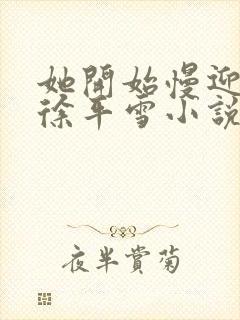 她開始慢迎
徐平雪小說
夜半賞菊